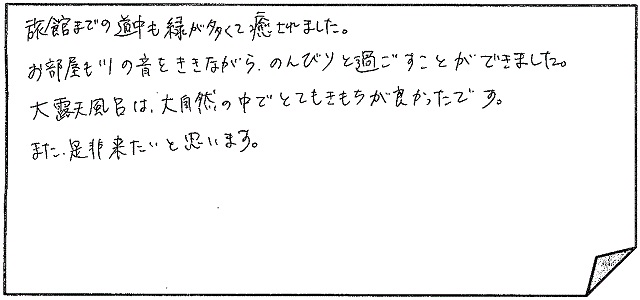 旅館までの道中も緑が多くて癒されました。
お部屋も川の音をききながら、のんびりと過ごすことができました。
大露天風呂は、大自然の中でとてもきもちが良かったです。
また、是非来たいと思います。